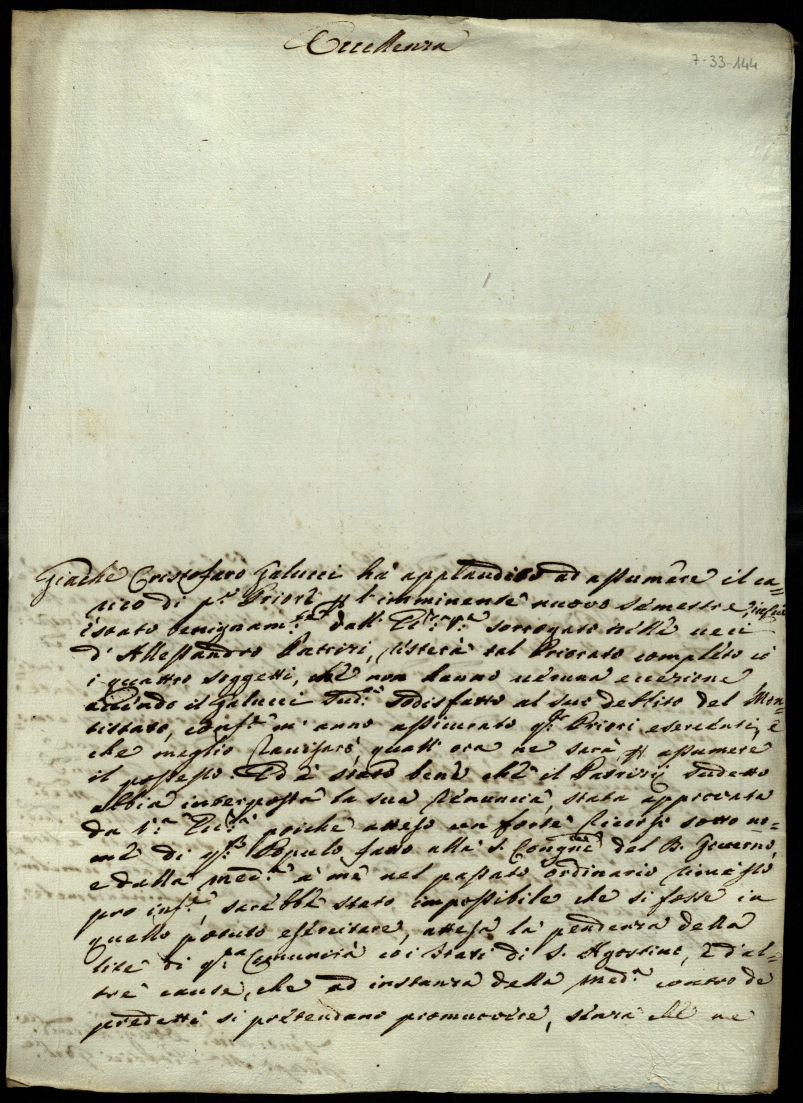 Eccellenza
7-33-144
Giache Cristofaro Galucci ha applaudito ad assumere il ca=
rico di pr. Priori l'imminente nuovo semestre
è stato benignam.te dall' sorrogato nelle veci
d'Allessandro Patrizi, resterà tal Priorato completo co
i quattro soggetti, che non hanno veruna eccezione
avendo il Galucci sud.o sodisfatto al suo debbito del Mon=
tistato, m'anno assicurato q.ti Priori esercenti, e
che meglio quall'ora ne sarà assumere
il possesso. Ed è stato bene che il Patrizi sudetto
abbia interposta la sua renuncia, stata approvata
da poiche atteso un forte ricorso sotto no=
me di q.to Popolo fatto alla S. Cong.ne del B. Governo,
e dalla med.a à me nel passato ordinario rimesso
pro inf.e, sarebbe stato impossibile che si fosse in
quello potuto esercitare, attesa la pendenza della
lite di q.ta Comunità co i Frati di S. Agostino, e d'al=
tre cause, che ad instanza della med.a contro de
predetti si pretendano promuovere, senza che ne